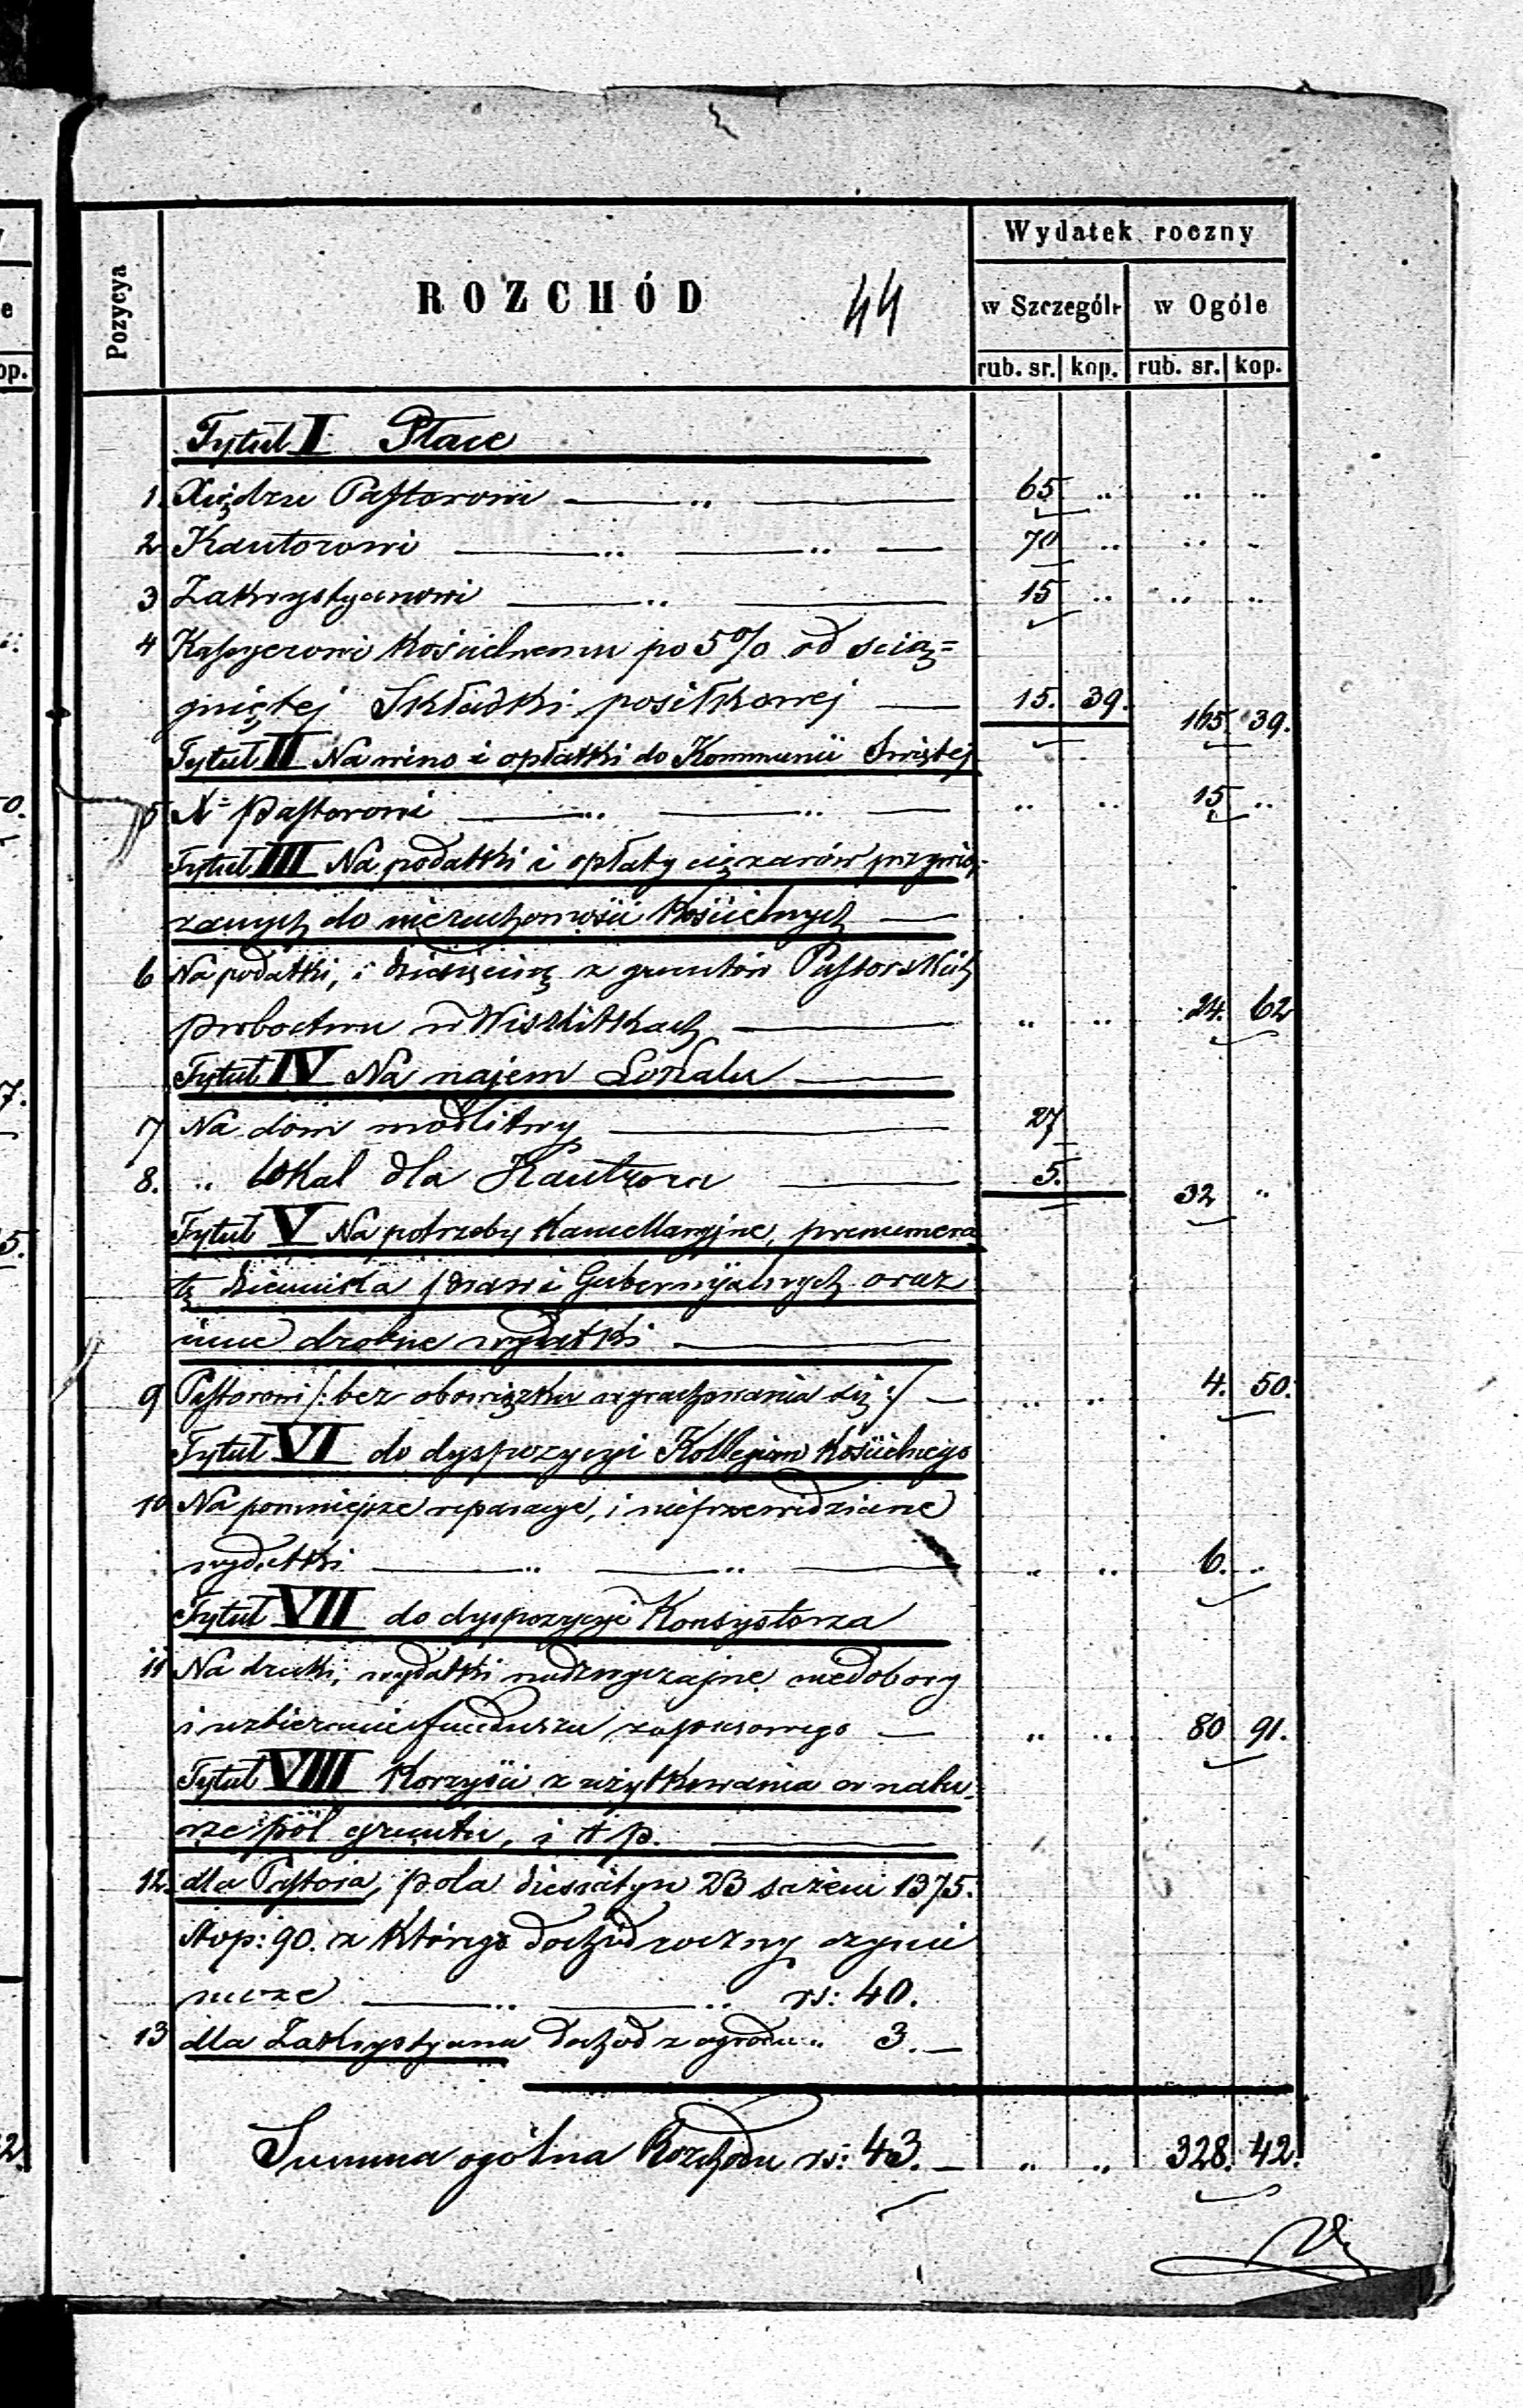 Wydatek roczny
Pozycya ROZCHÓD 44 w Szczegól. w Ogóle
rub. sr. kop. rub. sr. kop.
Tytuł I Płace
1. Xiędzu Pastorowi — „ — 65 „ „ „
2 Kantorowi — „ — „ — 70 „ „ „
3 Zakrystyanowi — „ — 15 „ „ „
4 Kassyerowi Kościelnemu po 5% od scią=
gniętej Składki posiłkowej — 15. 39. 165 39.
Tytuł II Na wino i opłatki do Kommunii Swiętej
5 X= Pastorowi — „ — „ — „ „ 15 „
Tytuł III Na podatki i opłaty ciężarów przywią-
zanych do nieruchomości Kościelnych —
6 Na podatki, i dziesięcinę z gruntów Pastorskich
probostwu w Wiskitkach — „ „ 24. 62
Tytuł IV Na najem Lokalu —
7 Na dom modlitwy — 27
8. „ lokal dla Kantora — 5. 32 „
Tytuł V Na potrzeby Kancellaryjne, prenumera
tę dziennika praw i Gubernijalnych oraz
inne drobne wydatki —
9 Pastorowi /: bez obowiązku wyrachowania się :/ — „ „ 4. 50.
Tytuł VI do dyspozycyi Kollegium Kościelnego
10 Na pomniejsze reparacye, i nieprzewidziane
wydatki — „ — „ — „ „ 6. „
Tytuł VII do dyspozycyi Konsystorza
11 Na druki, wydatki nadzwyczajne, niedobory
i uzbieranie funduszu zapasowego — „ „ 80 91.
Tytuł VIII Korzyści z użytkowania w natu-
rze pól gruntu, i t p. —
12. dla Pastora, pola dziesiatyn 23 sażeni 1375.
stop: 90. z którego dochód roczny czynić
może — „ — „ rs: 40.
13 dla Zakrystyana dochód z ogrodu „ 3. —
Summa ogólna Rozchodu rs: 43. — „ „ 328. 42.